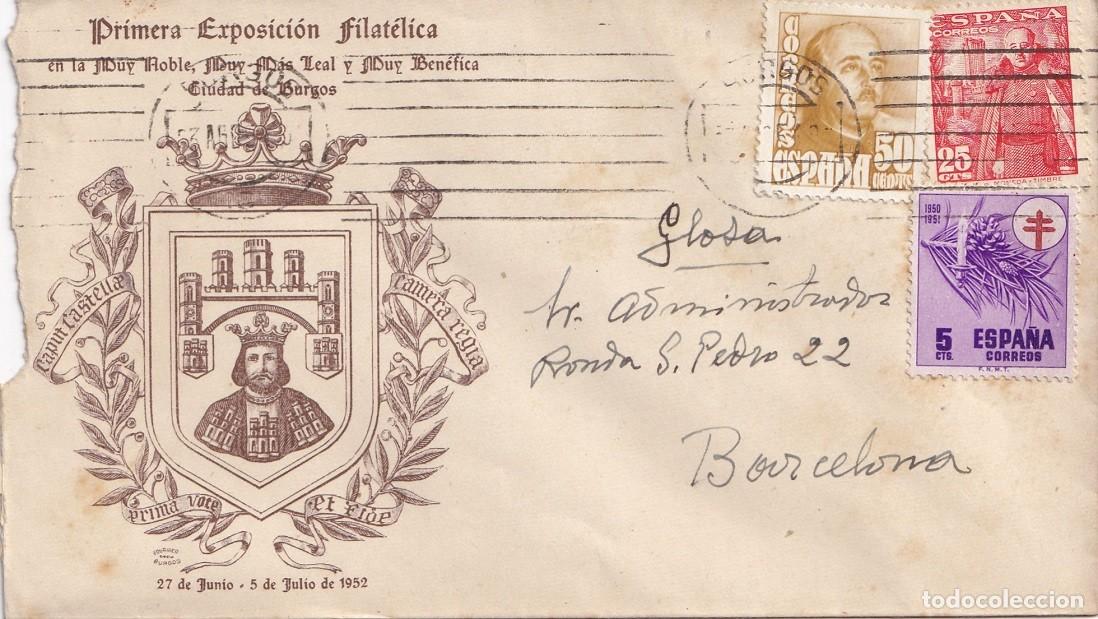 Primera Exposición Filatélica
en la Muy Noble, Muy Más Leal y Muy Benéfica
Ciudad de Burgos
BURGOS
BURGOS
CORREOS
ESPAÑA
50
CENTMS
ESPAÑA
CORREOS
25
CTS
MONEDA Y TIMBRE
1950
1951
5
CTS.
ESPAÑA
CORREOS
F.N.M.T.
Caput Castellæ
Camera regia
prima voce
et fide
BURGOS
27 de Junio - 5 de Julio de 1952
Glosa
Sr. Administrador
Ronda S. Pedro 22
Barcelona
todocoleccion